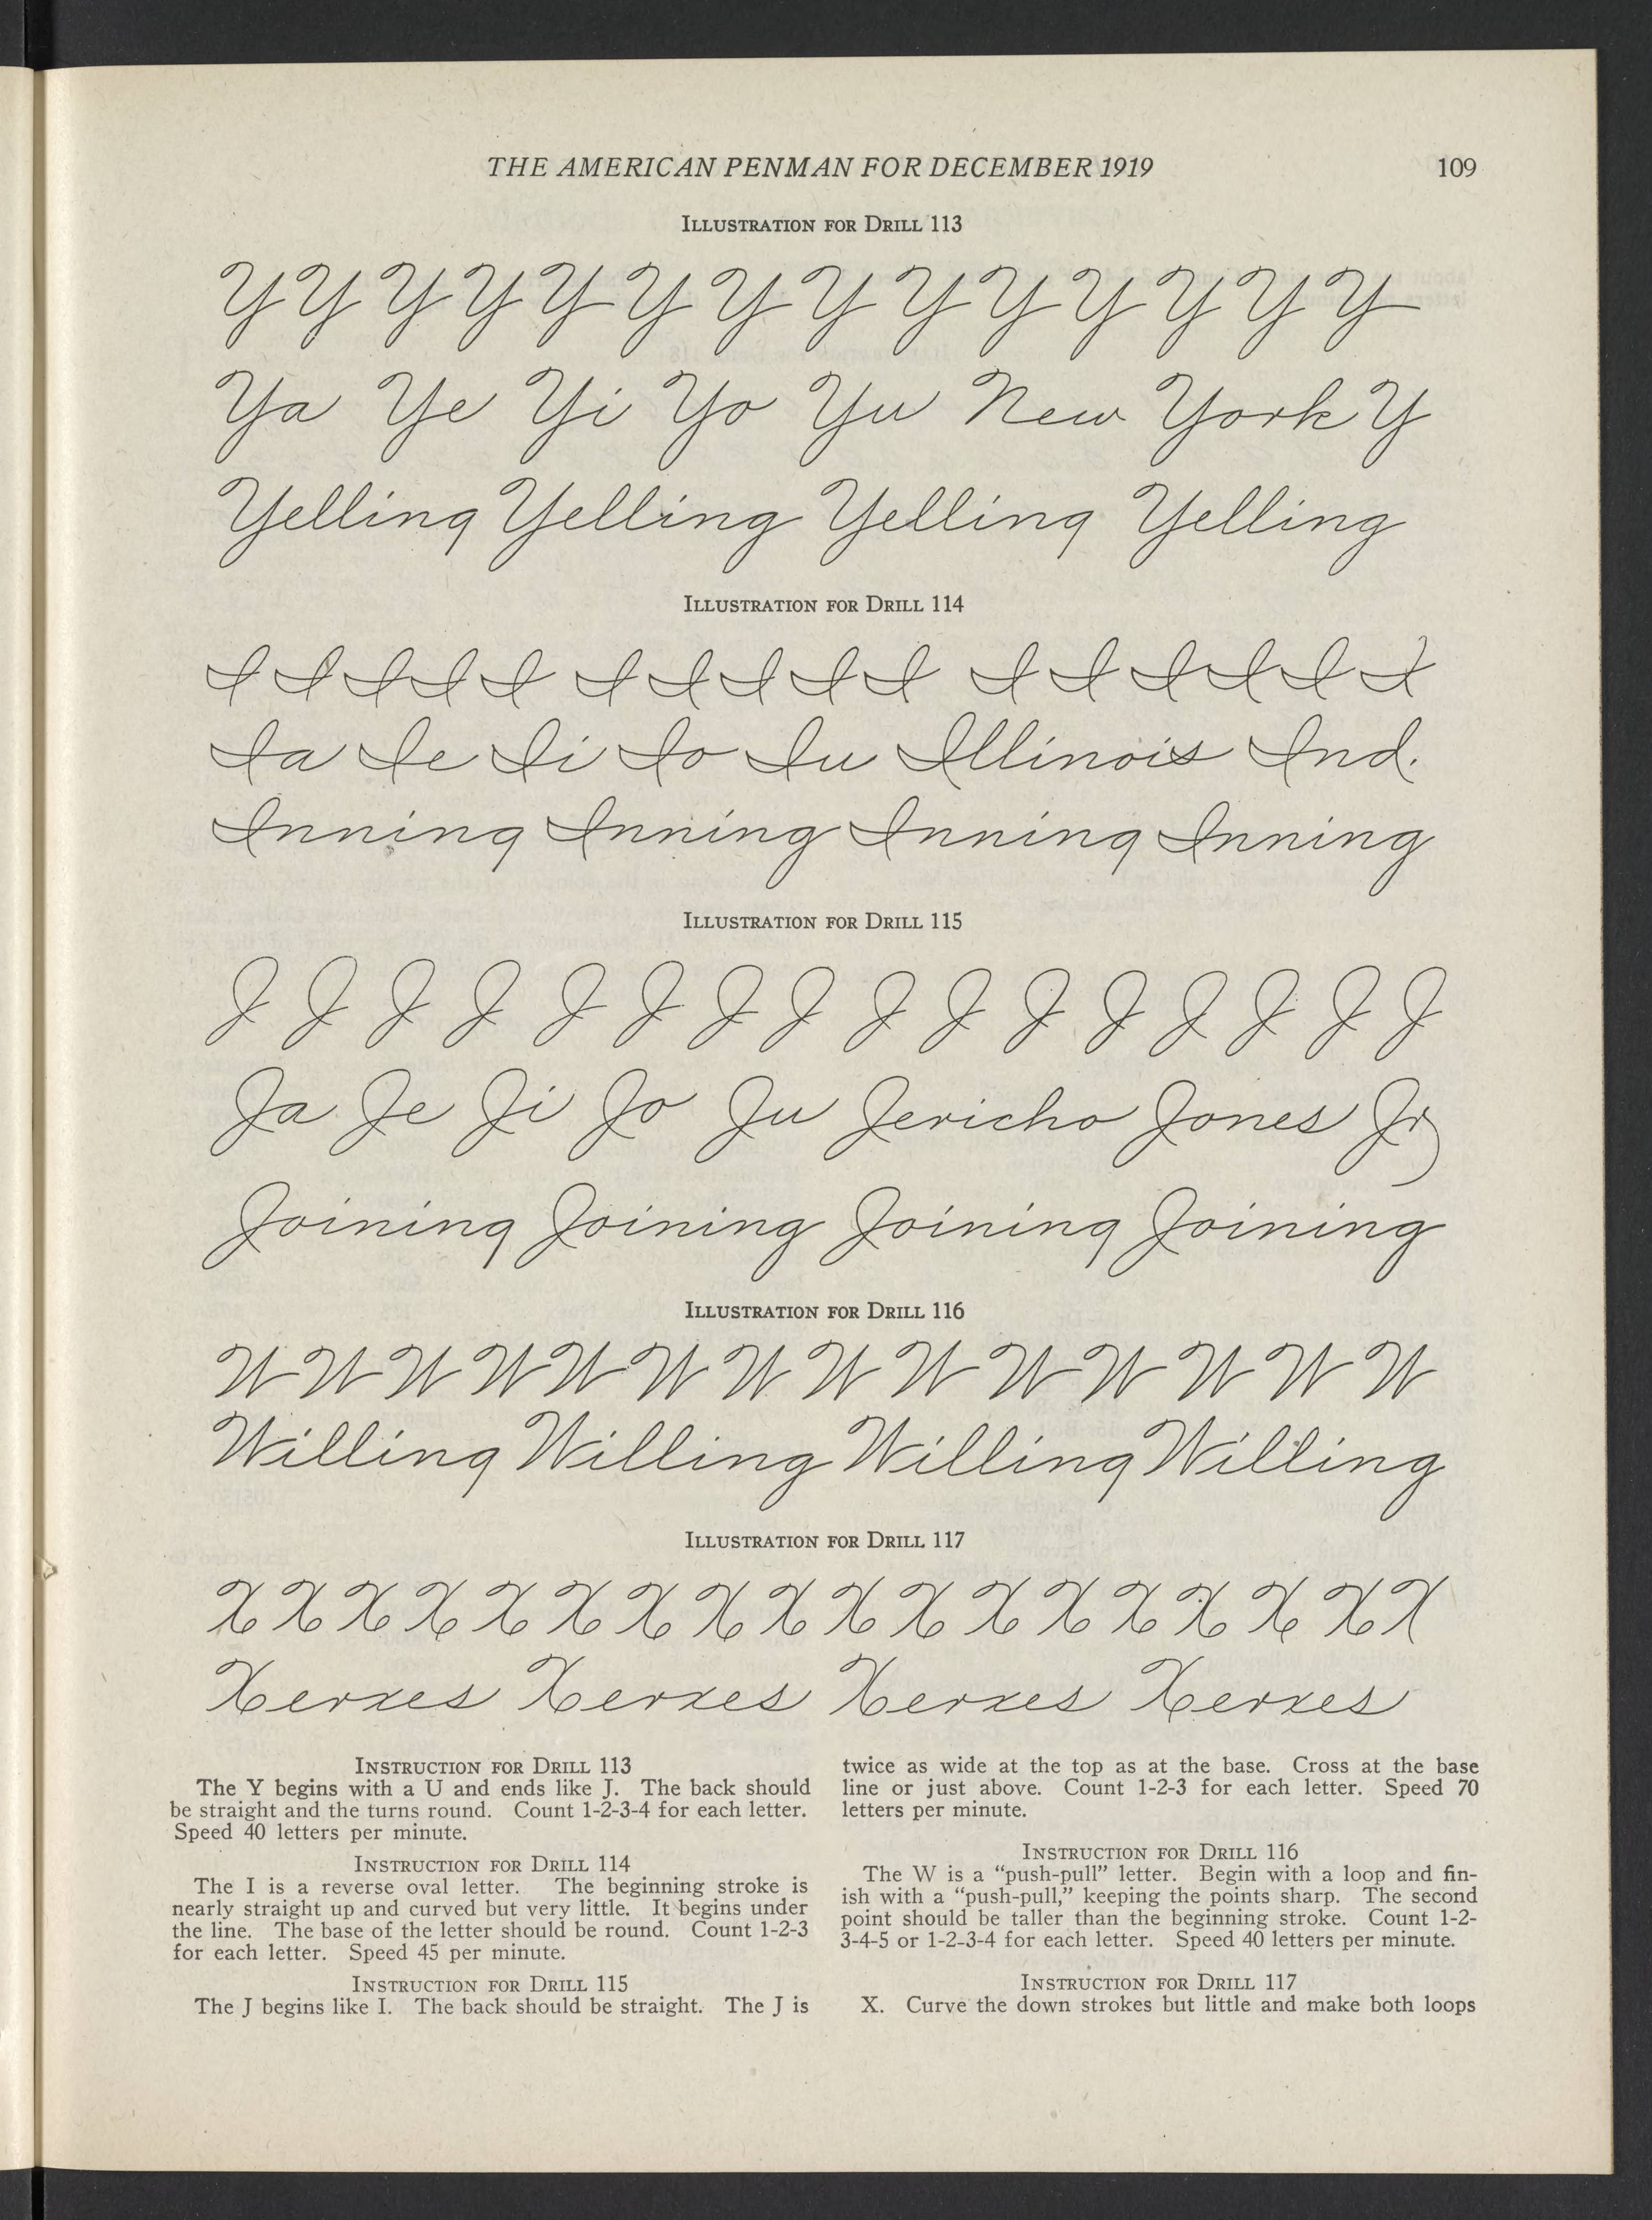 THE AMERICAN PENMAN FOR DECEMBER 1919 109
ILLUSTRATION FOR DRILL 113
Y Y Y Y Y Y Y Y Y Y Y Y Y Y
Ya Ye Yi Yo Yu New York Y
Yelling Yelling Yelling Yelling
ILLUSTRATION FOR DRILL 114
I I I I I I I I I I I I I I I I
Ia Ie Ii Io Iu Illinois Ind.
Inning Inning Inning Inning
ILLUSTRATION FOR DRILL 115
J J J J J J J J J J J J J J J J
Ja Je Ji Jo Ju Jericho Jones Jr
Joining Joining Joining Joining
ILLUSTRATION FOR DRILL 116
W W W W W W W W W W W W W W
Willing Willing Willing Willing
ILLUSTRATION FOR DRILL 117
X X X X X X X X X X X X X X X X X X
Xerxes Xerxes Xerxes Xerxes
INSTRUCTION FOR DRILL 113
The Y begins with a U and ends like J. The back should
be straight and the turns round. Count 1-2-3-4 for each letter.
Speed 40 letters per minute.
INSTRUCTION FOR DRILL 114
The I is a reverse oval letter. The beginning stroke is
nearly straight up and curved but very little. It begins under
the line. The base of the letter should be round. Count 1-2-3
for each letter. Speed 45 per minute.
INSTRUCTION FOR DRILL 115
The J begins like I. The back should be straight. The J is
twice as wide at the top as at the base. Cross at the base
line or just above. Count 1-2-3 for each letter. Speed 70
letters per minute.
INSTRUCTION FOR DRILL 116
The W is a “push-pull” letter. Begin with a loop and fin-
ish with a “push-pull,” keeping the points sharp. The second
point should be taller than the beginning stroke. Count 1-2-
3-4-5 or 1-2-3-4 for each letter. Speed 40 letters per minute.
INSTRUCTION FOR DRILL 117
X. Curve the down strokes but little and make both loops